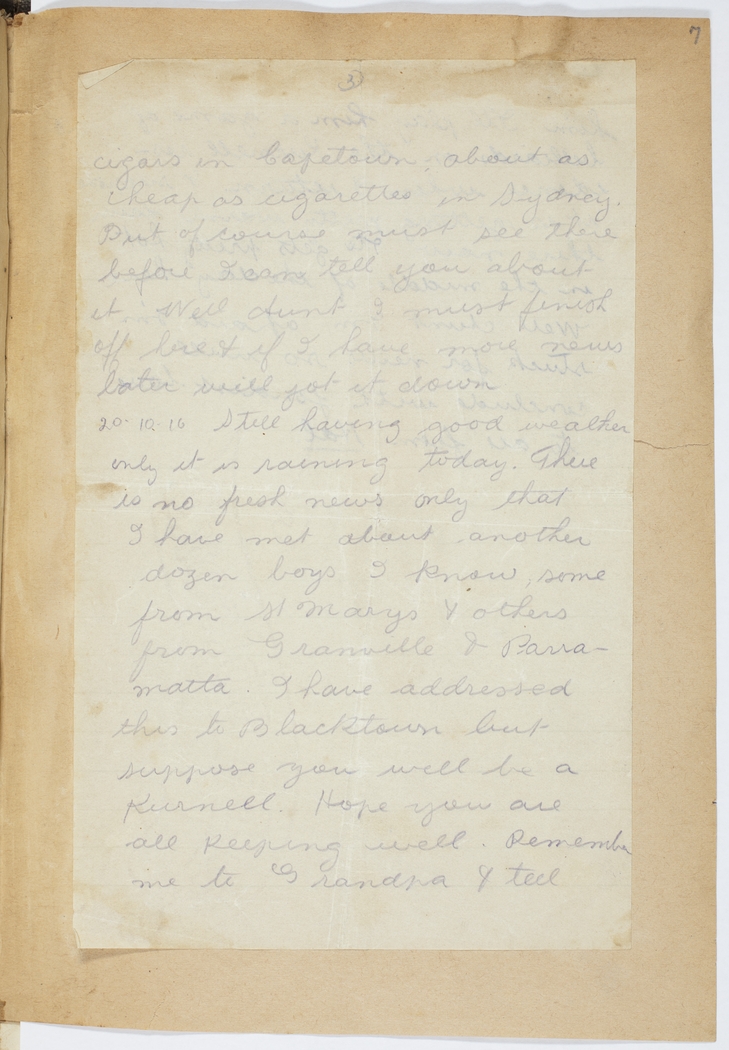 7
3
cigars in Capetown, about as
cheap as cigarettes in Sydney.
But of course must see there
before I can tell you about
it. Well Aunt I must finish
off here & if I have more news
later will jot it down
20.10.16 Still having good weather
only it is raining today. There
is no fresh news only that
I have met about another
dozen boys I know, some
from St Marys & others
from Granville & Parra-
matta. I have addressed
this to Blacktown but
suppose you will be a
Kurnell. Hope you are
all keeping well. Remember
me to Grandpa & tell